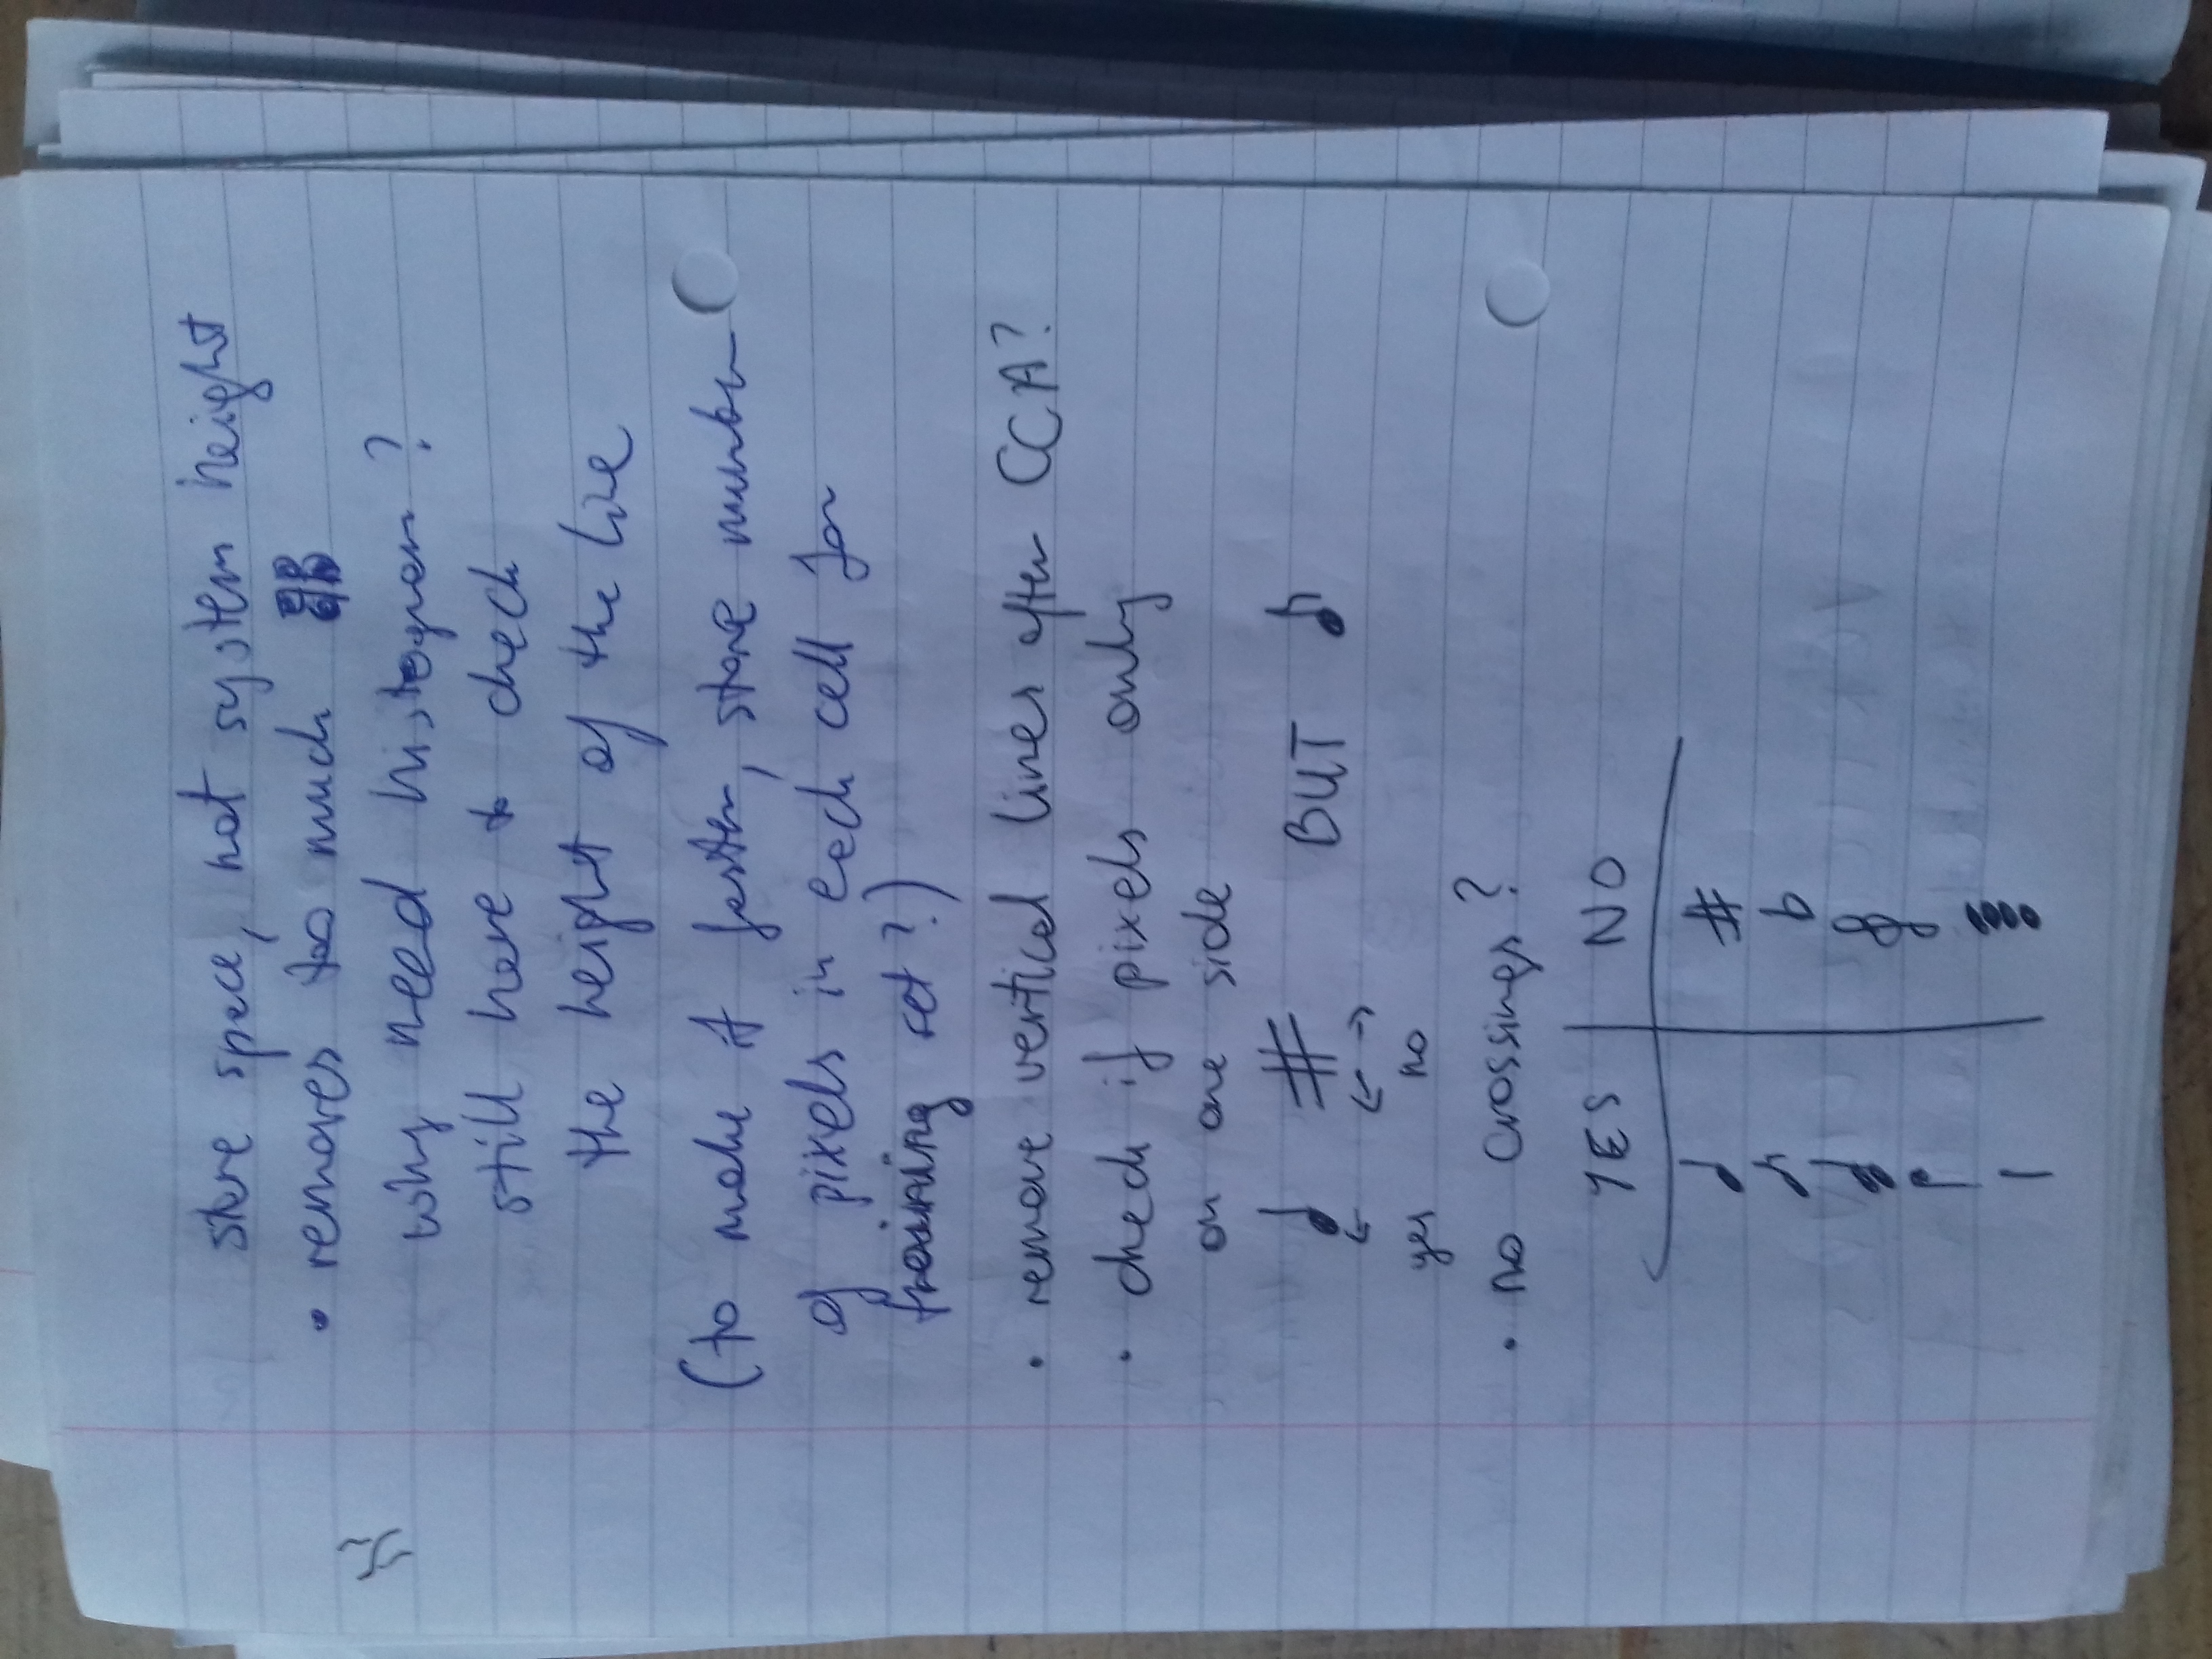 store space, not system height
• removes too much
why need histogram?
still have to check
the height of the line
(to make it faster, store number
of pixels in each cell for
training set?)
• remove vertical lines after CCA?
• check if pixels only
on one side
♩ # BUT ♪
← ← →
yes no
• no crossings?
YES NO
♩ #
♪ b
𝄞
|